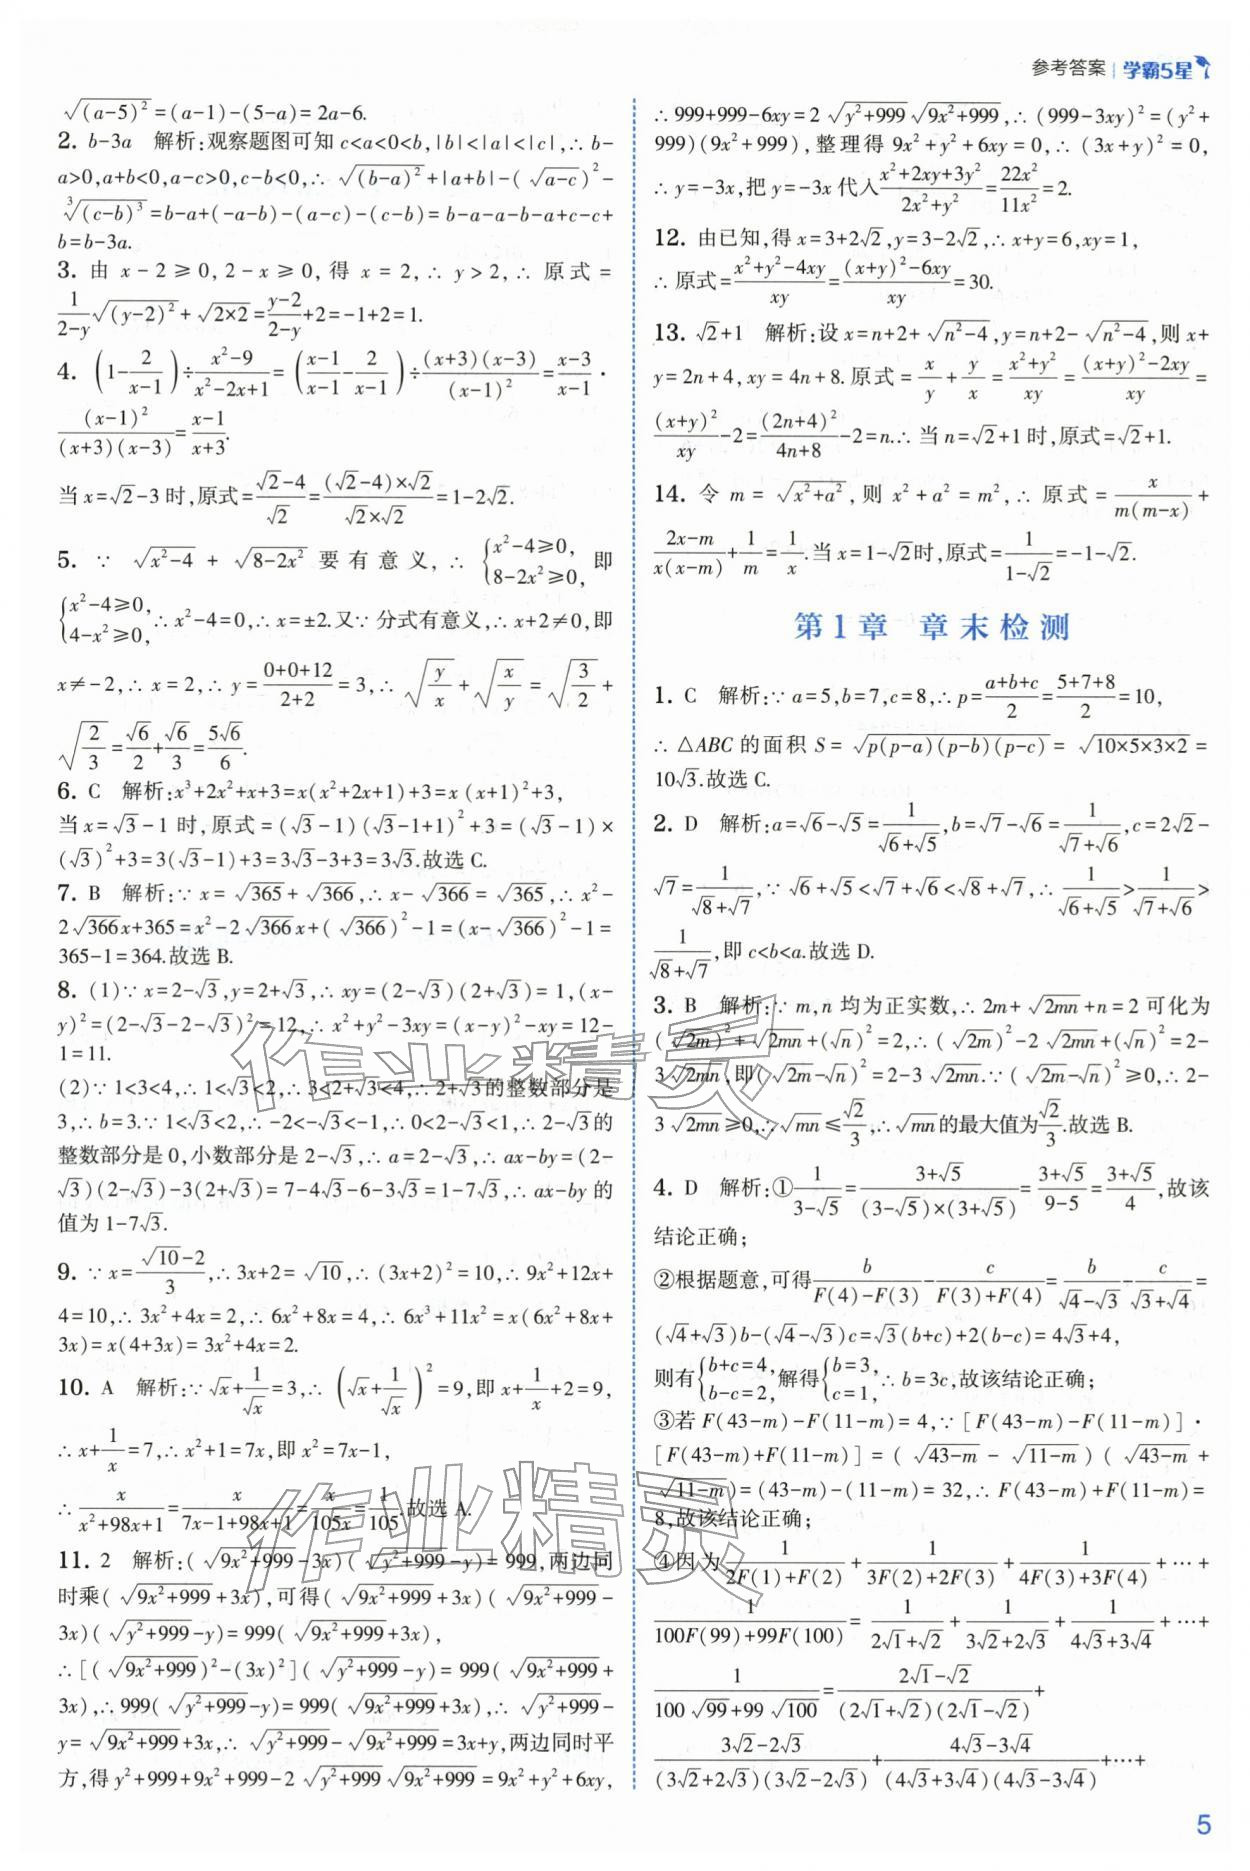 参考答案 | 学霸5星
√(a-5)²=(a-1)-(5-a)=2a-6.
2. b-3a 解析:观察题图可知 c<a<0<b,|b|<|a|<|c|,∴ b-
a>0,a+b<0,a-c>0,c-b<0,∴ √(b-a)²+|a+b|-(√a-c)²-
³√(c-b)³=b-a+(-a-b)-(a-c)-(c-b)=b-a-a-b-a+c-c+
b=b-3a.
3. 由 x-2≥0,2-x≥0,得 x=2,∴ y>2,∴ 原式=
1/(2-y)√(y-2)²+√2×2=(y-2)/(2-y)+2=-1+2=1.
4. (1-2/(x-1))÷(x²-9)/(x²-2x+1)=((x-1)/(x-1)-2/(x-1))÷(x+3)(x-3)/(x-1)²=(x-3)/(x-1)·
(x-1)²/(x+3)(x-3)=(x-1)/(x+3).
当 x=√2-3 时,原式=(√2-4)/√2=(√2-4)×√2/(√2×√2)=1-2√2.
5. ∵ √(x²-4)+√(8-2x²) 要有意义,∴ {x²-4≥0, 8-2x²≥0, 即
{x²-4≥0, 4-x²≥0, ∴ x²-4=0,∴ x=±2.又∵ 分式有意义,∴ x+2≠0,即
x≠-2,∴ x=2,∴ y=(0+0+12)/(2+2)=3,∴ √(y/x)+√(x/y)=√(3/2)+
√(2/3)=√6/2+√6/3=5√6/6.
6. C 解析:x³+2x²+x+3=x(x²+2x+1)+3=x(x+1)²+3,
当 x=√3-1 时,原式=(√3-1)(√3-1+1)²+3=(√3-1)×
(√3)²+3=3(√3-1)+3=3√3-3+3=3√3.故选 C.
7. B 解析:∵ x=√365+√366,∴ x-√366=√365,∴ x²-
2√366x+365=x²-2√366x+(√366)²-1=(x-√366)²-1=
365-1=364.故选 B.
8. (1)∵ x=2-√3,y=2+√3,∴ xy=(2-√3)(2+√3)=1,(x-
y)²=(2-√3-2-√3)²=12,∴ x²+y²-3xy=(x-y)²-xy=12-
1=11.
(2)∵ 1<3<4,∴ 1<√3<2,∴ 3<2+√3<4,∴ 2+√3的整数部分是
3,∴ b=3.∵ 1<√3<2,∴ -2<-√3<-1,∴ 0<2-√3<1,∴ 2-√3的
整数部分是 0,小数部分是 2-√3,∴ a=2-√3,∴ ax-by=(2-
√3)(2-√3)-3(2+√3)=7-4√3-6-3√3=1-7√3,∴ ax-by 的
值为 1-7√3.
9. ∵ x=(√10-2)/3,∴ 3x+2=√10,∴ (3x+2)²=10,∴ 9x²+12x+
4=10,∴ 3x²+4x=2,∴ 6x²+8x=4,∴ 6x³+11x²=x(6x²+8x+
3x)=x(4+3x)=3x²+4x=2.
10. A 解析:∵ √x+1/√x=3,∴ (√x+1/√x)²=9,即 x+1/x+2=9,
∴ x+1/x=7,∴ x²+1=7x,即 x²=7x-1,
∴ x/(x²+98x+1)=x/(7x-1+98x+1)=x/105x=1/105.故选 A.
11. 2 解析:(√(9x²+999)-3x)(√(y²+999)-y)=999,两边同
时乘(√(9x²+999)+3x),可得(√(9x²+999)+3x)(√(9x²+999)-
3x)(√(y²+999)-y)=999(√(9x²+999)+3x),
∴ [(√(9x²+999))²-(3x)²](√(y²+999)-y)=999(√(9x²+999)+
3x),∴ 999(√(y²+999)-y)=999(√(9x²+999)+3x),∴ √(y²+999)-
y=√(9x²+999)+3x,∴ √(y²+999)-√(9x²+999)=3x+y,两边同时平
方,得 y²+999+9x²+999-2√(y²+999)√(9x²+999)=9x²+y²+6xy,
∴ 999+999-6xy=2√(y²+999)√(9x²+999),∴ (999-3xy)²=(y²+
999)(9x²+999),整理得 9x²+y²+6xy=0,∴ (3x+y)²=0,
∴ y=-3x,把 y=-3x 代入(x²+2xy+3y²)/(2x²+y²)=22x²/11x²=2.
12. 由已知,得 x=3+2√2,y=3-2√2,∴ x+y=6,xy=1,
∴ 原式=(x²+y²-4xy)/xy=((x+y)²-6xy)/xy=30.
13. √2+1 解析:设 x=n+2+√(n²-4),y=n+2-√(n²-4),则 x+
y=2n+4,xy=4n+8.原式=x/y+y/x=(x²+y²)/xy=((x+y)²-2xy)/xy=
(x+y)²/xy-2=(2n+4)²/(4n+8)-2=n.∴ 当 n=√2+1 时,原式=√2+1.
14. 令 m=√(x²+a²),则 x²+a²=m²,∴ 原式=x/m(m-x)+
(2x-m)/x(x-m)+1/m=1/x.当 x=1-√2时,原式=1/(1-√2)=-1-√2.
第1章 章末检测
1. C 解析:∵ a=5,b=7,c=8,∴ p=(a+b+c)/2=(5+7+8)/2=10,
∴ △ABC 的面积 S=√p(p-a)(p-b)(p-c)=√10×5×3×2=
10√3.故选 C.
2. D 解析:a=√6-√5=1/(√6+√5),b=√7-√6=1/(√7+√6),c=2√2-
√7=1/(√8+√7),∵ √6+√5<√7+√6<√8+√7,∴ 1/(√6+√5)>1/(√7+√6)>
1/(√8+√7),即 c<b<a.故选 D.
3. B 解析:∵ m,n 均为正实数,∴ 2m+√2mn+n=2 可化为
(√2m)²+√2mn+(√n)²=2,∴ (√2m)²-2√2mn+(√n)²=2-
3√2mn,即(√2m-√n)²=2-3√2mn.∵ (√2m-√n)²≥0,∴ 2-
3√2mn≥0,∴ √mn≤√2/3,∴ √mn的最大值为√2/3.故选 B.
4. D 解析:①1/(3-√5)=(3+√5)/(3-√5)×(3+√5)=(3+√5)/(9-5)=(3+√5)/4,故该
结论正确;
②根据题意,可得b/(F(4)-F(3))-c/(F(3)+F(4))=b/(√4-√3)-c/(√3+√4)=
(√4+√3)b-(√4-√3)c=√3(b+c)+2(b-c)=4√3+4,
则有{b+c=4, b-c=2, 解得{b=3, c=1, ∴ b=3c,故该结论正确;
③若 F(43-m)-F(11-m)=4,∵ [F(43-m)-F(11-m)]·
[F(43-m)+F(11-m)]=(√(43-m)-√(11-m))(√(43-m)+
√(11-m))=(43-m)-(11-m)=32,∴ F(43-m)+F(11-m)=
8,故该结论正确;
④因为1/(2F(1)+F(2))+1/(3F(2)+2F(3))+1/(4F(3)+3F(4))+…+
1/(100F(99)+99F(100))=1/(2√1+√2)+1/(3√2+2√3)+1/(4√3+3√4)+…+
1/(100√99+99√100)=(2√1-√2)/(2√1+√2)(2√1-√2)+
(3√2-2√3)/(3√2+2√3)(3√2-2√3)+(4√3-3√4)/(4√3+3√4)(4√3-3√4)+…+
5
作业精灵
作业精灵